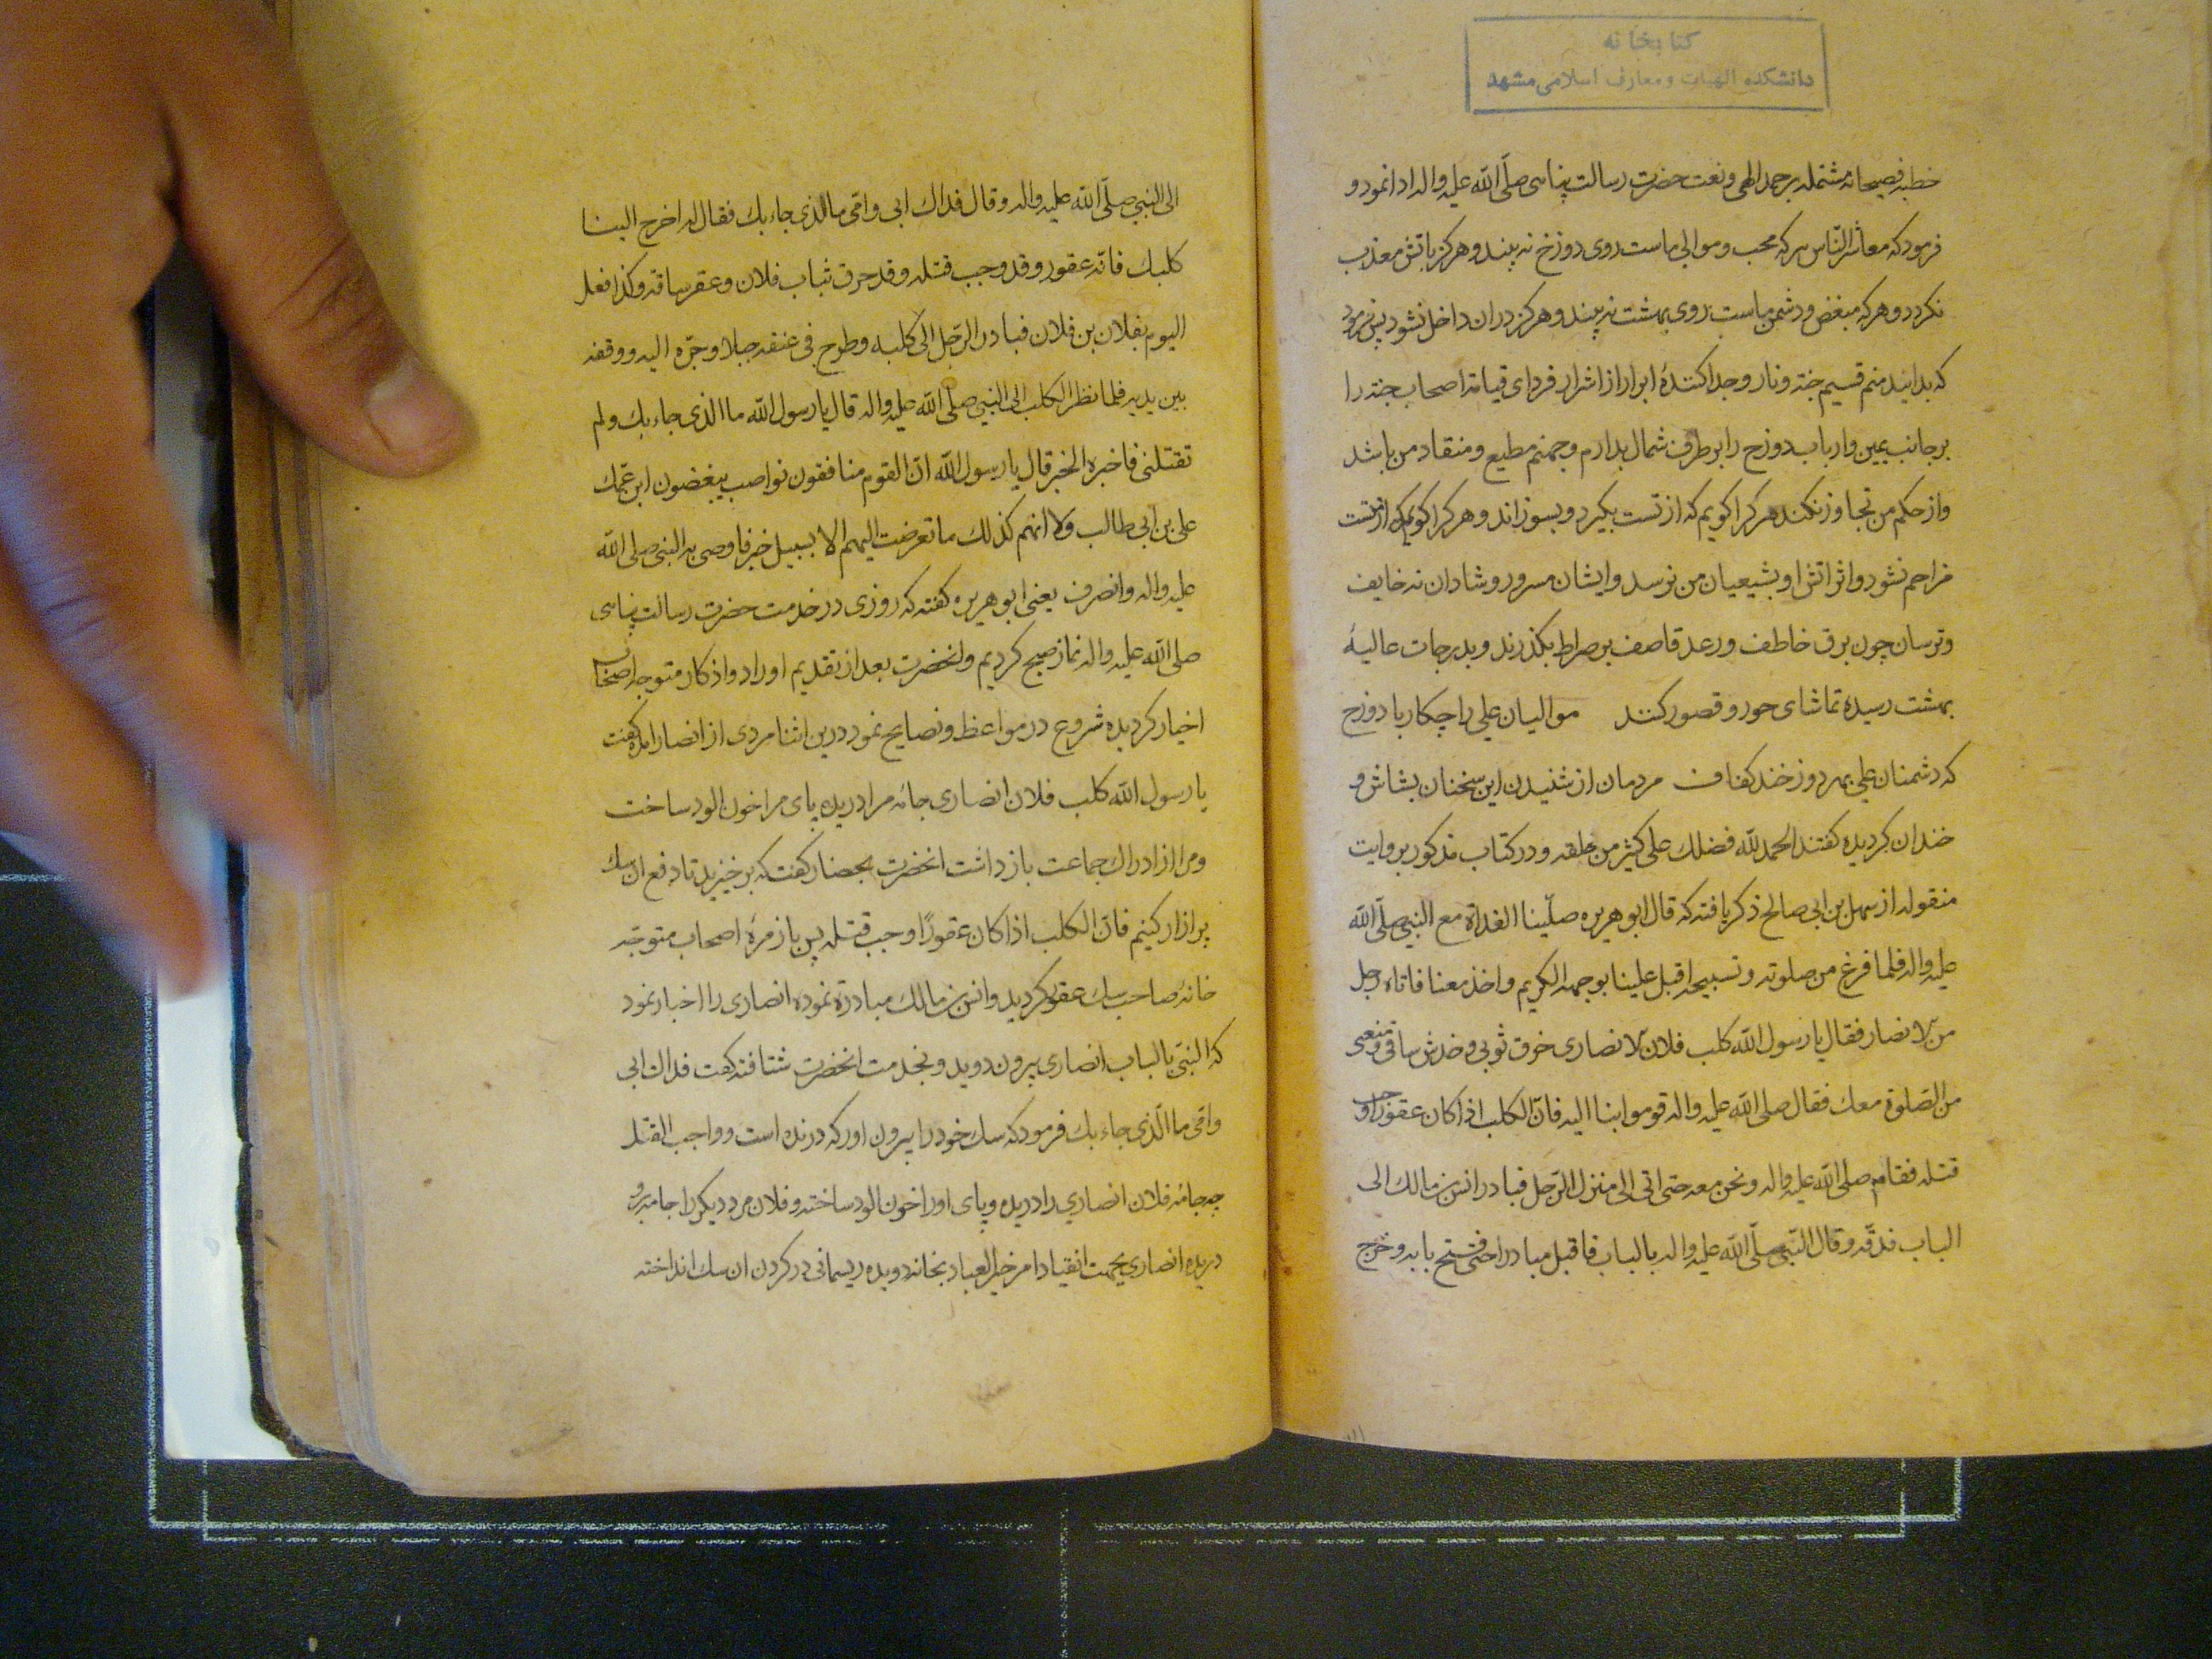 کتابخانه
دانشکده الهیات و معارف اسلامی مشهد
خطبه فصیحانه مشتمله بر حمد الهی و نعت حضرت رسالت پناهی صلّی الله علیه واله ادا نمود و
فرمود که معاشر النّاس هر که محب و موالی ماست روی دوزخ نه بیند و هرکز باتش معذب
نکردد و هر که مبغض و دشمن ماست روی بهشت نه بیند و هرکز دران داخل نشود پس فرمود
که بدانید منم قسیم جنة و نار و جدا کنندهٔ ابرار از اشرار فردای قیامة اصحاب جنة را
بر جانب یمین و ارباب دوزخ را بر طرف شمال بدارم و جهنم مطیع و منقاد من باشد
و از حکم من تجاوز نکند هر کرا کویم که از تست بکیرد و بسوزاند و هر کرا کویم
مزاحم نشود و اثر اتش او بشیعیان من نرسد و ایشان مسرور و شادان نه خایف
و ترسان چون برق خاطف و رعد قاصف بر صراط بکذرند و بدرجات عالیهٔ
بهشت رسیده تماشای حور و قصور کنند موالیان علی را چکار با دوزخ
که دشمنان علی بهر دوزخند کفاف مردمان از شنیدن این سخنان بشاش و
خندان کردیده کفتند الحمد لله فضلك علی کثیر من خلقه و در کتاب مذکور بروایت
منقوله از سهل بن ابی صالح ذکر یافته که قال ابو هریره صلّینا الغداة مع النبی صلّی الله
علیه واله فلما فرغ من صلوته و تسبیحه اقبل علینا بوجهه الکریم واخذ معنا فاتاه رجل
من الانصار فقال یا رسول الله کلب فلان الانصاری خرق ثوبی و خدش ساقی و منعنی
من الصّلوة معك فقال صلی الله علیه واله قوموا بنا الیه فانّ الکلب اذا کان عقورًا وجب
قتله فقام صلی الله علیه واله ونحن معه حتی اتی الی منزل الرّجل فبادر انس بن مالك الی
الباب فدقّه وقال النّبی صلّی الله علیه واله بالباب فاقبل مبادرا حتی فتح بابه وخرج
الی النبی صلّی الله علیه واله وقال فداك ابی وامّی ما الذی جاء بك فقال له اخرج الینا
کلبك فانّه عقور وقد وجب قتله وقد خرق ثیاب فلان وعقر ساقه وکذا فعل
الیوم بفلان بن فلان فبادر الرّجل الی کلبه وطرح فی عنقه حبلا وجرّه الیه ووقفه
بین یدیه فلما نظر الکلب الی النبی صلّی الله علیه واله قال یا رسول الله ما الذی جاء بك ولم
تقتلنی فاخبره الخبر قال یا رسول الله انّ القوم منافقون نواصب یبغضون ابن عمّك
علی بن ابی طالب ولا انهم کذلك ما تعرضت الیهم الا بسبیل خیر فاوصی به النبی صلی الله
علیه واله وانصرف یعنی ابو هریره کفته که روزی در خدمت حضرت رسالت پناهی
صلی الله علیه واله نماز صبح کردیم و انحضرت بعد از تقدیم اوراد و اذکار متوجه اصحاب
اخیار کردیده شروع در مواعظ و نصایح نمود درین اثنا مردی از انصار امده کفت
یا رسول الله کلب فلان انصاری جامه مرا دریده پای مرا خون الود ساخت
و مرا از ادراك جماعت باز داشت انحضرت بحضار کفت که برخیزید تا دفع ان سك
پر ازار کنیم فانّ الکلب اذا کان عقورًا وجب قتله پس با زمرهٔ اصحاب متوجّه
خانهٔ صاحب سك عقور کردید و انس بن مالك مبادرة نموده انصاری را اخبار نمود
که النبیّ بالباب انصاری بیرون دوید و بخدمت انحضرت شتافته کفت فداك ابی
وامّی ما الّذی جاء بك فرمود که سك خود را بیرون اور که درنده است و واجب القتل
چه جامهٔ فلان انصاری را دریده و پای او را خون الود ساخته و فلان مرد دیکر را جامه برو
دریده انصاری بجهت انقیاد امر خیر العباد بخانه دویده ریسمانی در کردن ان سك انداخته